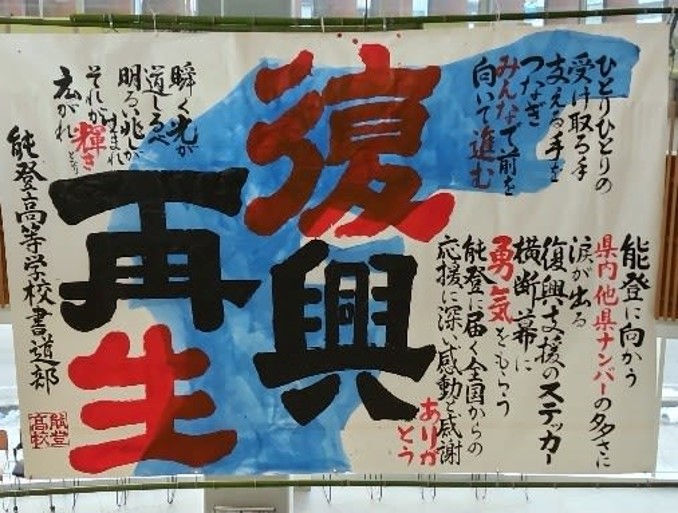 ひとりひとりの
受け取る手
支える手を
つなぎ
みんなで前を
向いて進む
復興
再生
能登に向かう
県内他県ナンバーの多さに
涙が出る
復興支援のステッカー
横断幕に
勇気をもらう
能登に届く全国からの
応援に深い感動と感謝
ありがとう
瞬く光が
道しるべ
明るい兆しが
生まれ
それが輝き
となり
広がれ
能登高等学校書道部
能登高校